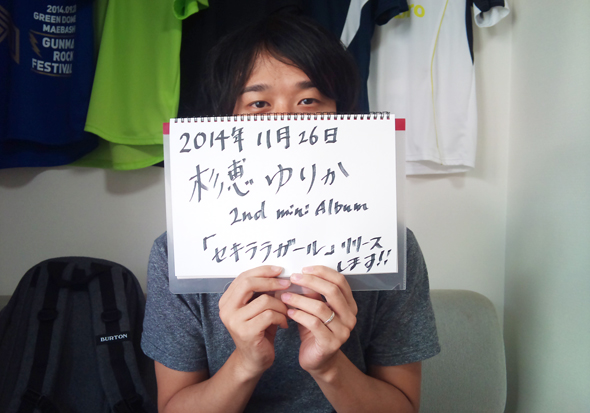 2014.09.
GREEN DOME
MAEBASHI
GUNMA
ROCK
FESTIVAL
2014年 11月 26日
杉恵ゆりか
2nd mini Album
「セキララガール」リリース
します!!
BURTON